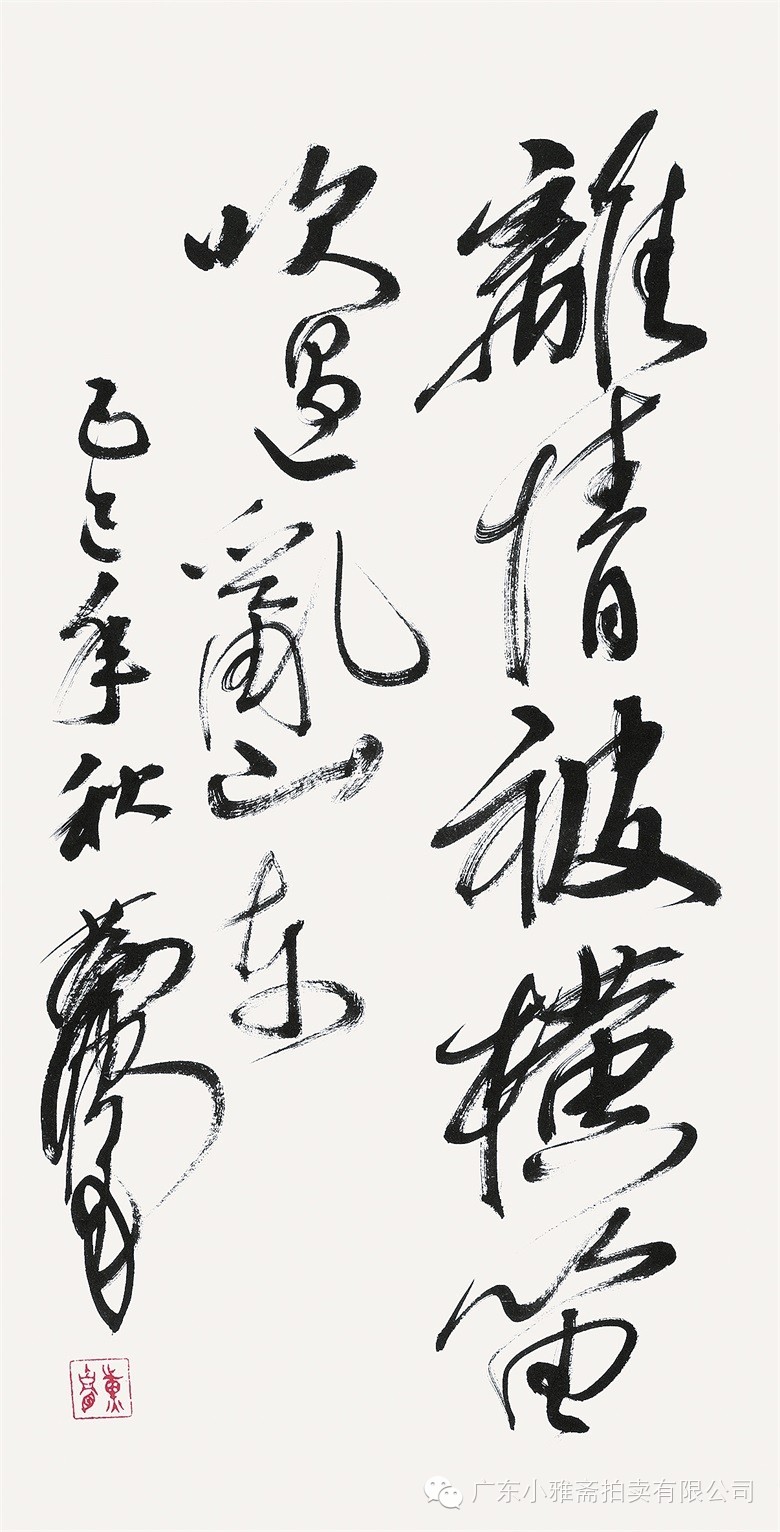 離情被橫笛
吹過亂山東
己巳年秋
广东小雅斋拍卖有限公司